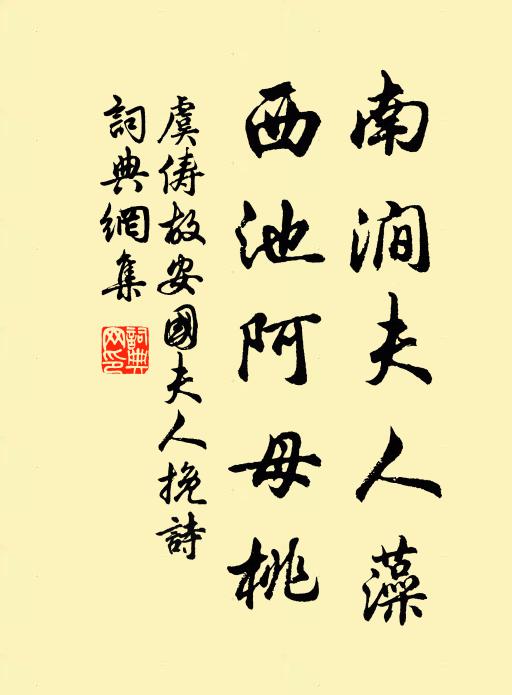 南澗夫人藻
西池阿母桃
虞俦故安國夫人挽詩
詞典網集
詞典網印